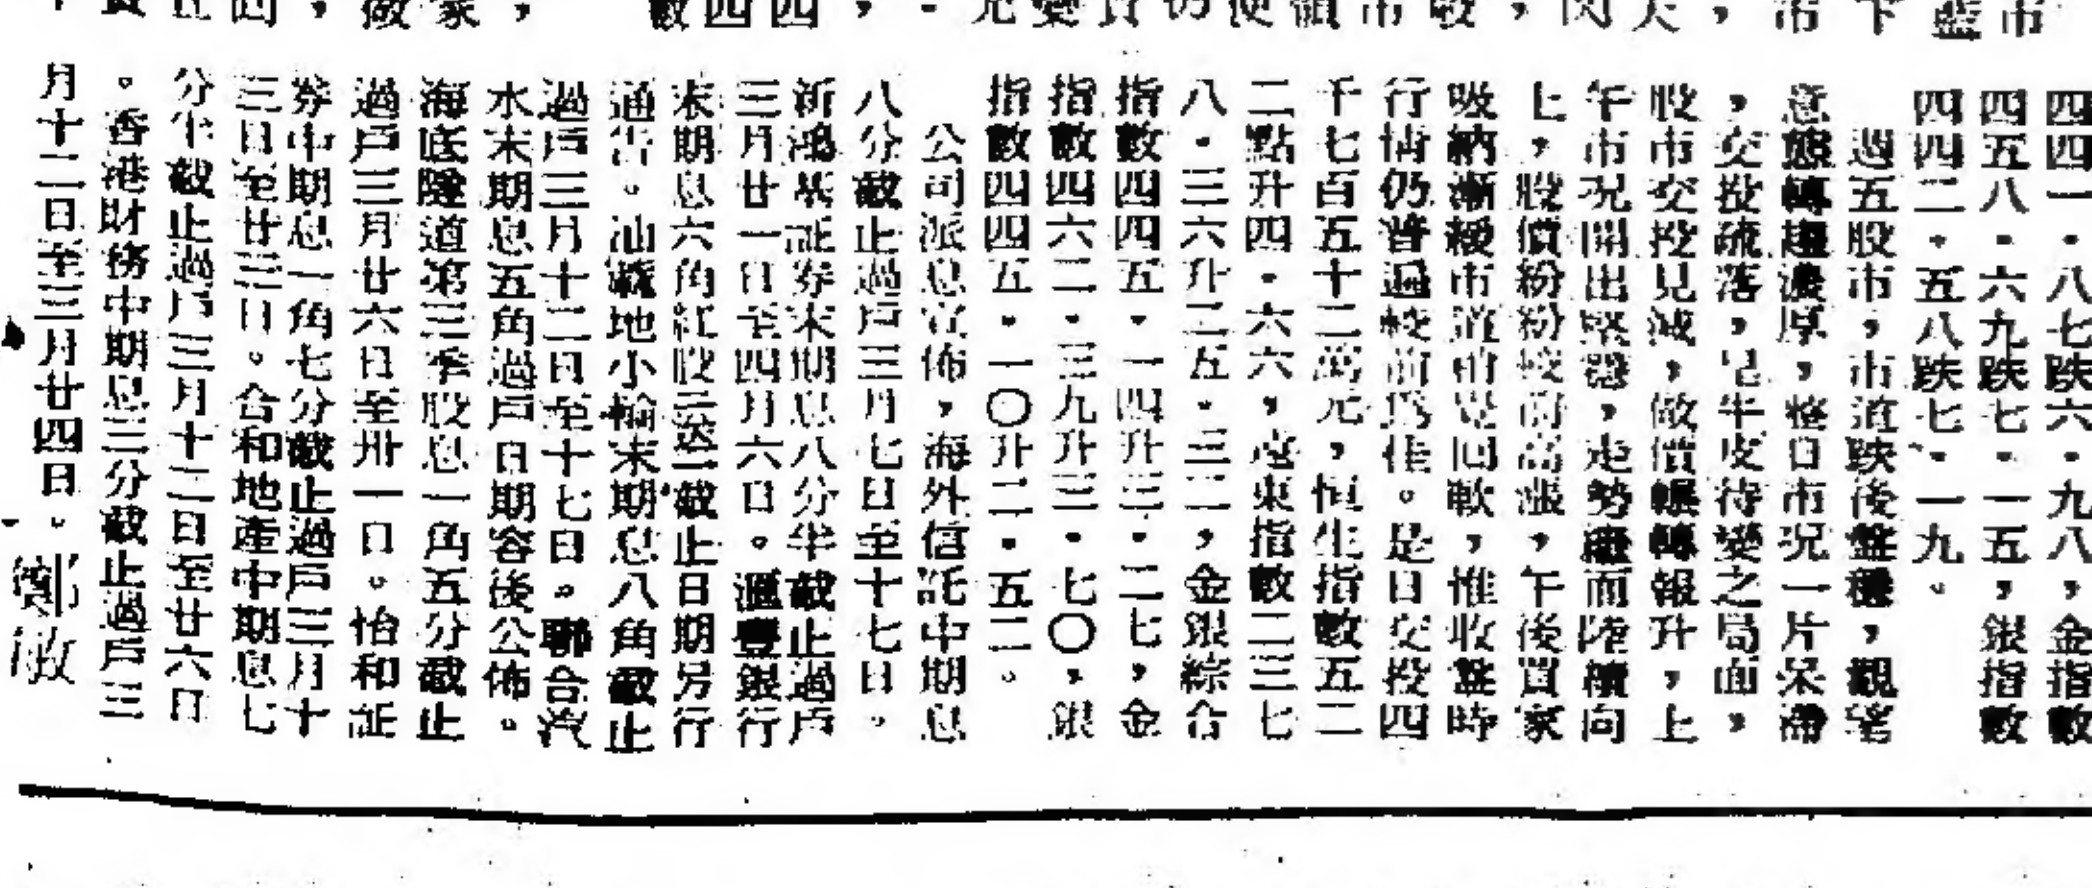 四四一．八七跌六．九八，金指數
四五八．六九跌七．一五，銀指數
四四二．五八跌七．一九。
週五股市，市道跌後盤穩，觀望
意態轉趨濃厚，整日市況一片呆滯
，交投疏落，呈牛皮待變之局面，
股市交投見減，做價輾轉報升，上
午市況開出堅穩，走勢而陸續向
上，股價紛紛較前高漲，午後買家
吸納漸緩市道稍呈回軟，惟收盤時
行情仍普遍較前爲佳。是日交投四
千七百五十二萬元，恒生指數五二
二點升四．六六，遠東指數二三七
八．三六升二五．三二，金銀綜合
指數四四五．一四升三．二七，金
指數四六二．三九升三．七〇，銀
指數四四五．一〇升二．五二。
公司派息宣佈，海外信託中期息
八分截止過戶三月七日至十七日。
新鴻基証券末期息八分半截止過戶
三月廿一日至四月六日。滙豐銀行
末期息六角紅股三送一截止日期另行
通告。油蔴地小輪末期息八角截止
過戶三月十二日至十七日。聯合汽
水末期息五角過戶日期容後公佈。
海底隧道第三季股息一角五分截止
過戶三月廿六日至卅一日。怡和証
券中期息一角七分截止過戶三月十
三日至廿三日。合和地產中期息七
分半截止過戶三月十二日至廿六日
。香港財務中期息三分截止過戶三
月十二日至三月廿四日。鄭敏